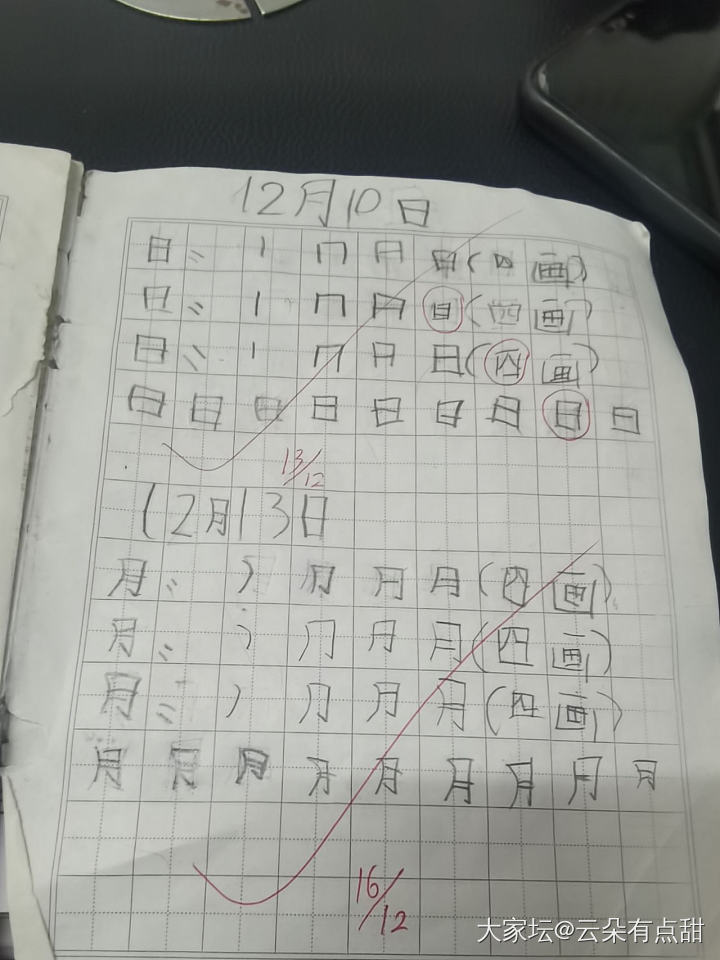 12月10日
日: 丨 冂 月 日(四画)
日: 丨 冂 月 日(四画)
日: 丨 冂 日 日(四画)
日 日 日 日 日 日 日 日 日
13/12
12月13日
月: ノ 月 月 月(四画)
月: ノ 冂 月 月(四画)
月: ノ 冂 月 月(四画)
月 月 月 月 月 月 月 月 月
16/12
大家坛@云朵有点甜